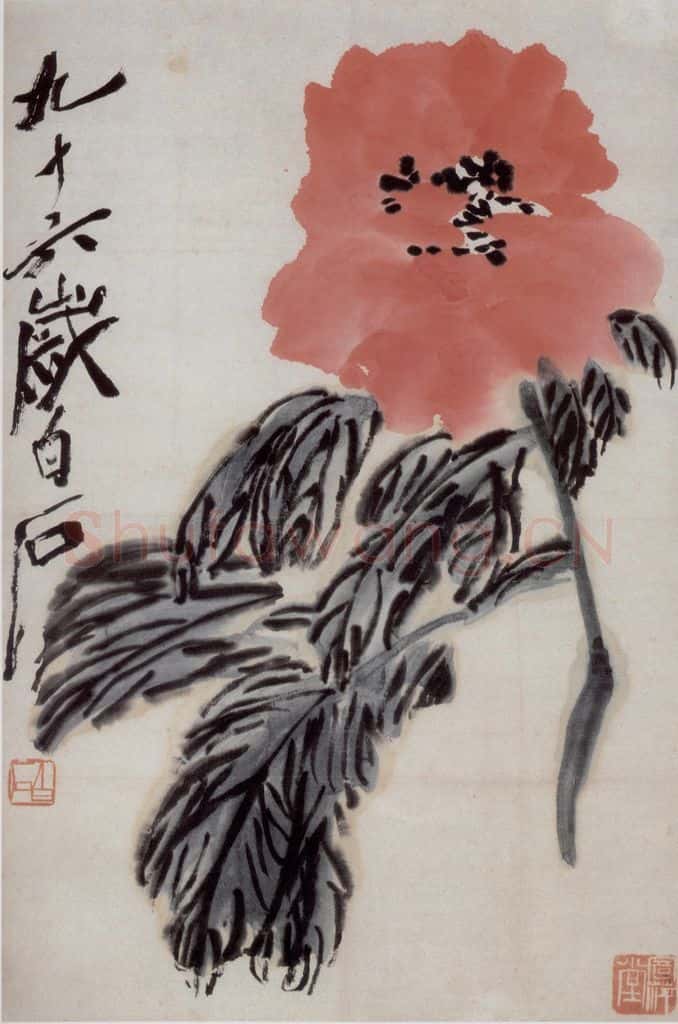 九十六歲白石
白石
Shufawang.CN